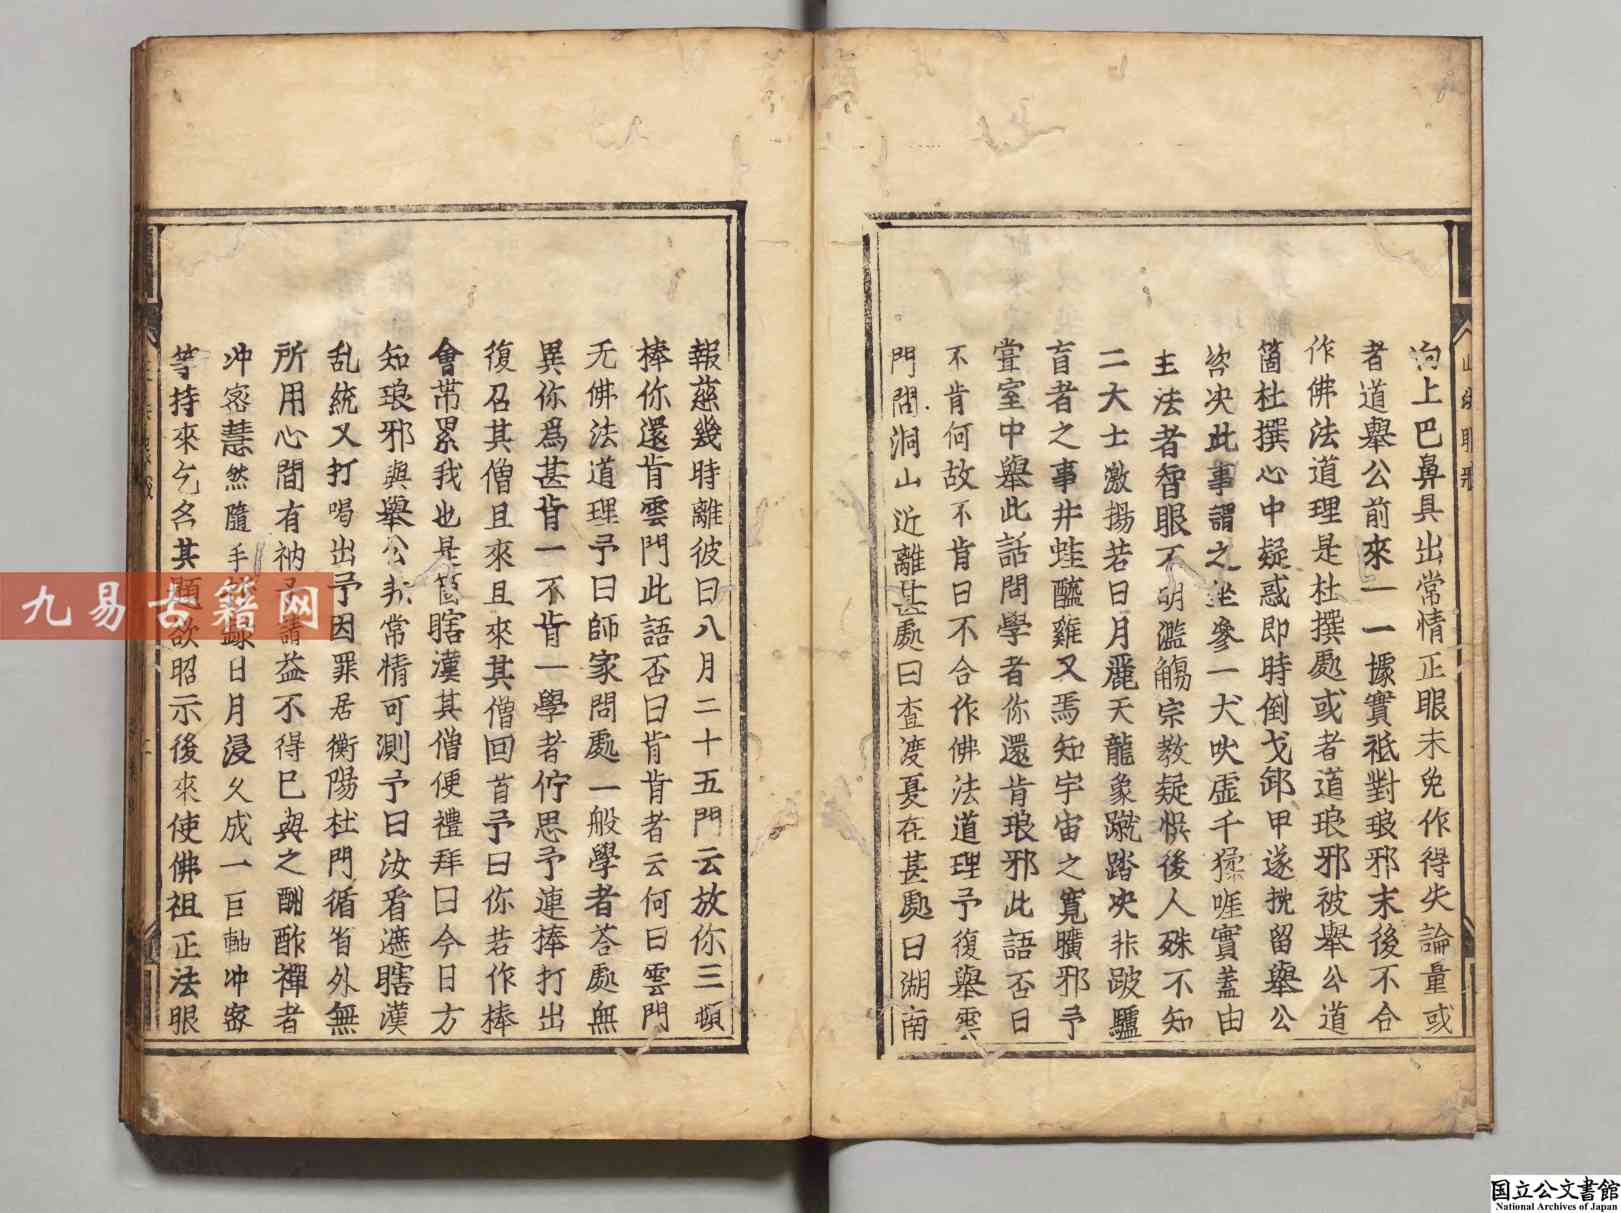 向上巴鼻具出常情正眼未免作得失論量或
者道舉公前來一一據實祗對琅邪末後不合
作佛法道理是杜撰處或者道琅邪被舉公道
箇杜撰心中疑惑即時倒戈卸甲遂挽留舉公
咨决此事謂之坐參一犬吠虛千猱啀實蓋由
主法者智眼不明濫觴宗教疑悞後人殊不知
二大士激揚若日月麗天龍象蹴踏决非跛驢
盲者之事井蛙醯雞又焉知宇宙之寬曠邪予
甞室中舉此話問學者你還肯琅邪此語否曰
不肯何故不肯曰不合作佛法道理予復舉雲
門問洞山近離甚處曰查渡夏在甚處曰湖南
報慈幾時離彼曰八月二十五門云放你三頓
棒你還肯雲門此語否曰肯肯者云何曰雲門
无佛法道理予曰師家問處一般學者荅處無
異你為甚肯一不肯一學者佇思予連棒打出
復召其僧且來且來其僧回首予曰你若作棒
會帶累我也是箇瞎漢其僧便禮拜曰今日方
知琅邪與舉公非常情可測予曰汝看遮瞎漢
乱統又打喝出予因罪居衡陽杜門循省外無
所用心間有衲子請益不得已與之酬酢禪者
冲密慧然隨手抄錄日月浸久成一巨軸冲密
等持來乞名其題欲昭示後來使佛祖正法眼
九易古籍网
国立公文書館
National Archives of Japan